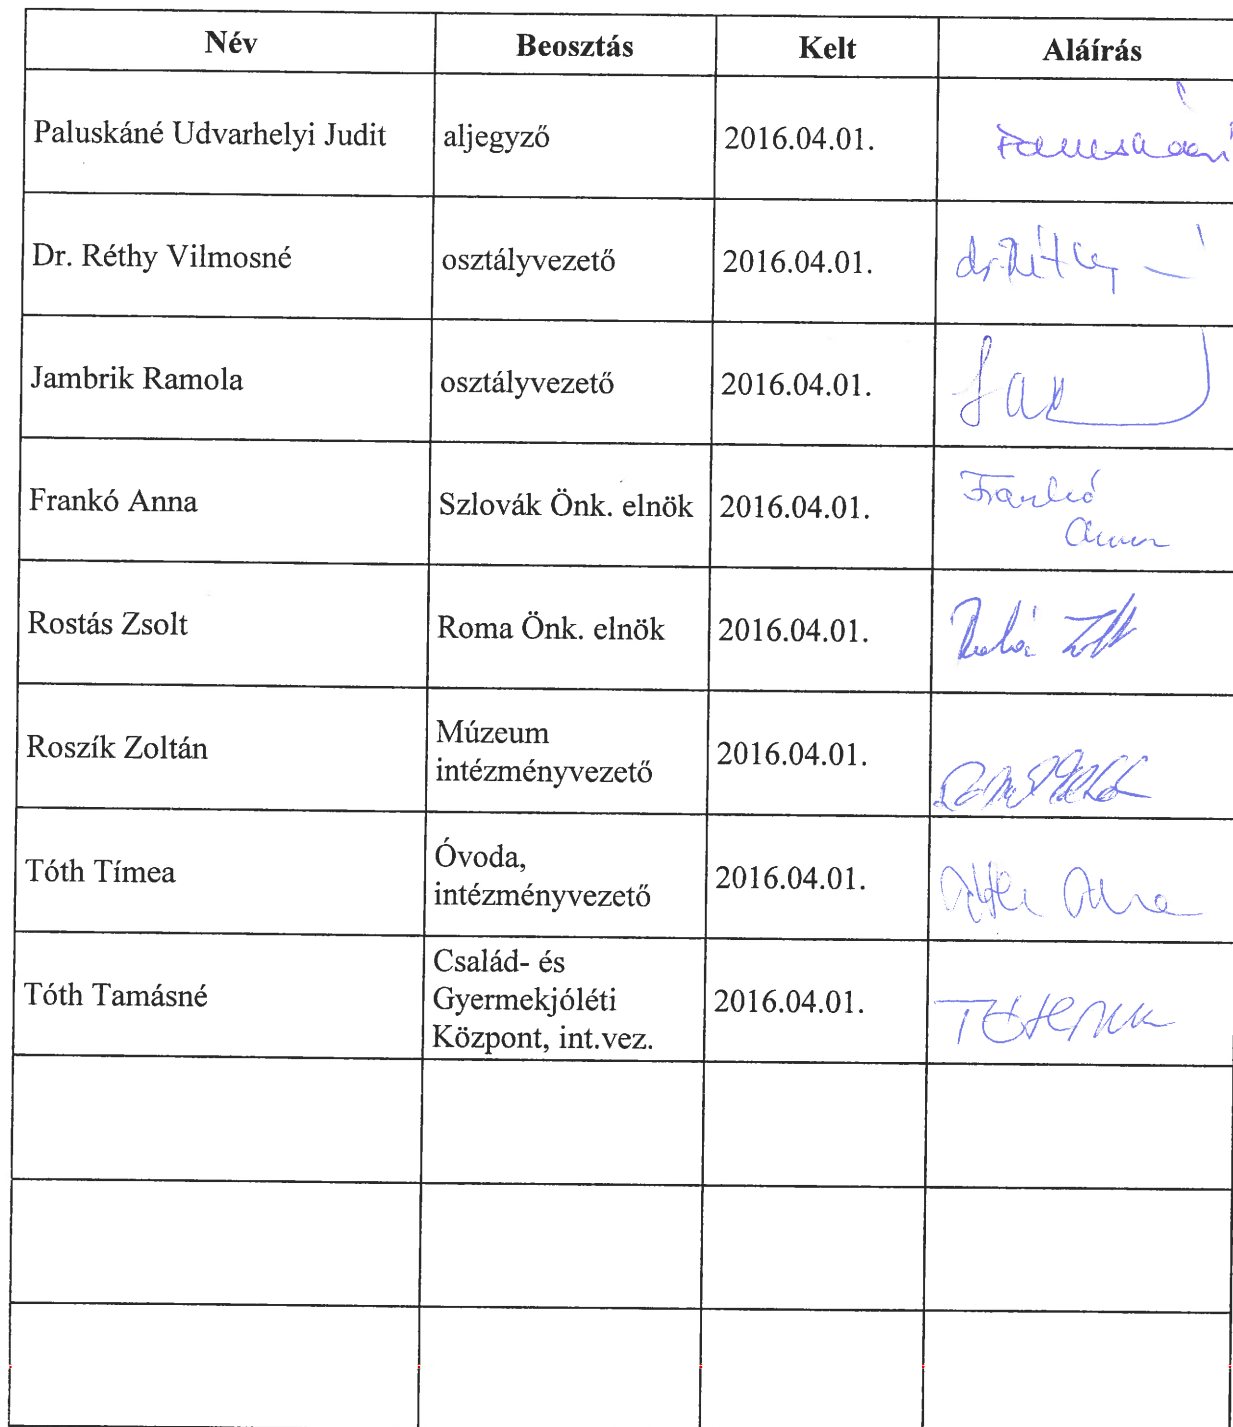 Név Beosztás Kelt Aláírás
Paluskáné Udvarhelyi Judit aljegyző 2016.04.01.
Dr. Réthy Vilmosné osztályvezető 2016.04.01. dr. Réthy
Jambrik Ramola osztályvezető 2016.04.01.
Frankó Anna Szlovák Önk. elnök 2016.04.01. Frankó
Anna
Rostás Zsolt Roma Önk. elnök 2016.04.01.
Roszík Zoltán Múzeum
intézményvezető 2016.04.01.
Tóth Tímea Óvoda,
intézményvezető 2016.04.01.
Tóth Tamásné Család- és
Gyermekjóléti
Központ, int.vez. 2016.04.01.